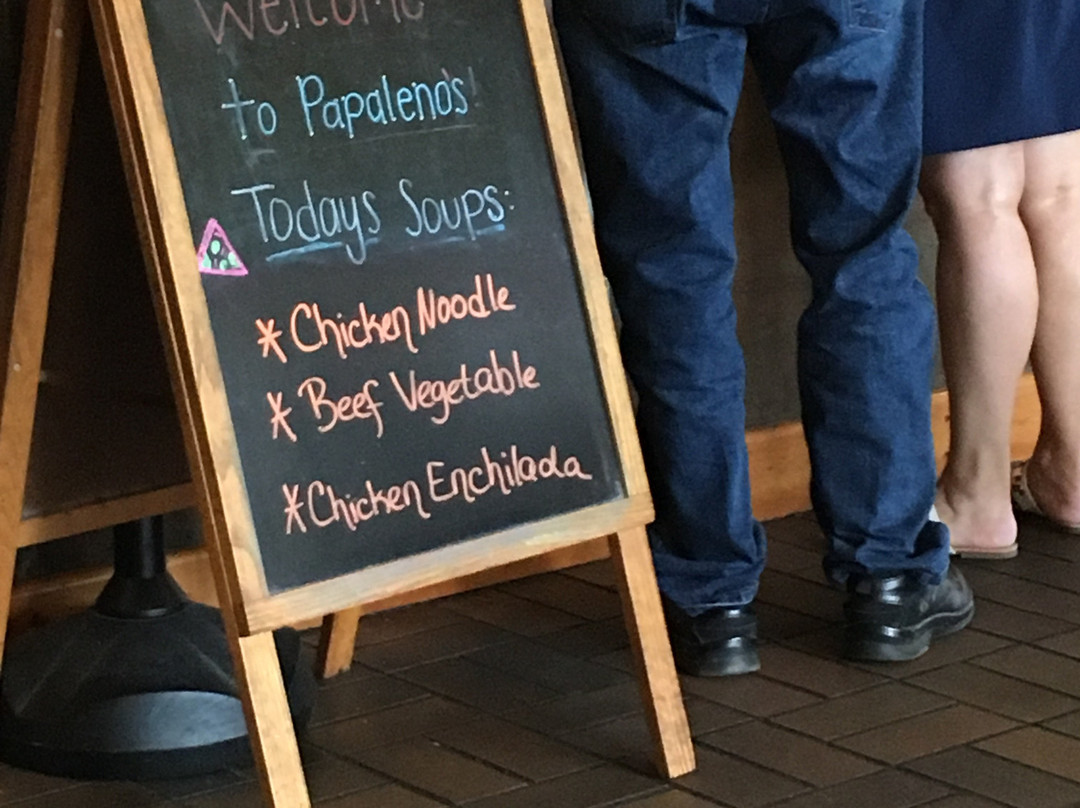 Welcome
to Papaleno's!
Todays Soups:
* Chicken Noodle
* Beef Vegetable
* Chicken Enchilada